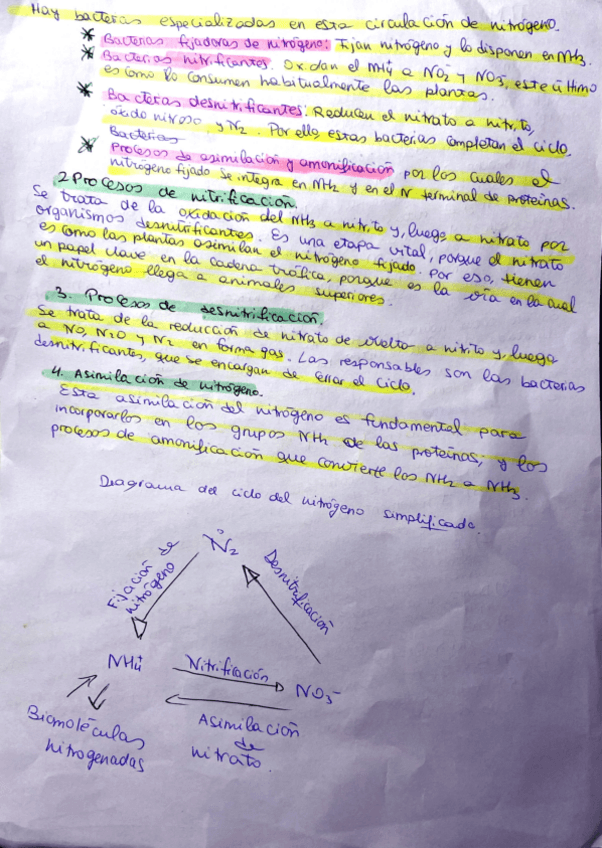 Hay bacterias especializadas en esta circulación de nitrógeno.
* Bacterias fijadoras de nitrógeno: Fijan nitrógeno y lo disponen en NH3.
* Bacterias nitrificantes. Oxidan el NH4 a NO2- y NO3-, este último
es como lo consumen habitualmente las plantas.
* Bacterias desnitrificantes: Reducen el nitrato a nitrito,
óxido nitroso y N2. Por ello estas bacterias completan el ciclo.
Bacterias
* Procesos de asimilación y amonificación por los cuales el
nitrógeno fijado se integra en NH2 y en el N terminal de proteínas.
2 Procesos de nitrificación.
Se trata de la oxidación del NH3 a nitrito y, luego a nitrato por
organismos desnitrificantes. Es una etapa vital, porque el nitrato
es como las plantas asimilan el nitrógeno fijado. Por eso, tienen
un papel clave en la cadena trófica, porque es la vía en la cual
el nitrógeno llega a animales superiores.
3. Procesos de desnitrificación.
Se trata de la reducción de nitrato de vuelta a nitrito y, luego
a NO, N2O y N2 en forma gas. Las responsables son las bacterias
desnitrificantes, que se encargan de cerrar el ciclo.
4. Asimilación de nitrógeno.
Esta asimilación del nitrógeno es fundamental para
incorporarlos en los grupos NH2 de las proteínas; y los
procesos de amonificación que convierte los NH2 a NH3.
Diagrama del ciclo del nitrógeno simplificado.
N2
Fijación de
nitrógeno
Desnitrificación
NH4
Nitrificación
NO3-
Asimilación
de
nitrato.
Biomoléculas
nitrogenadas